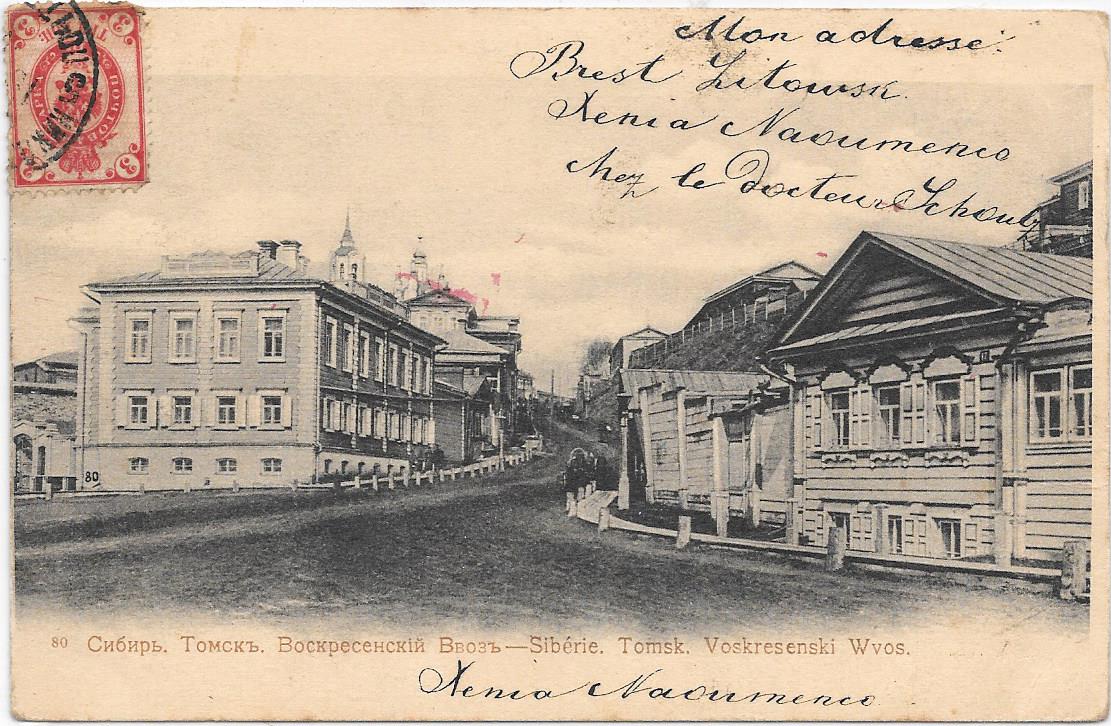 Mon adresse:
Brest Litowsk.
Xenia Naoumenco
chez le docteur Schoulz
3 3
3 3
80
17
80 Сибирь. Томскъ. Воскресенскій Ввозъ—Sibérie. Tomsk. Voskresenski Wvos.
Xenia Naoumenco